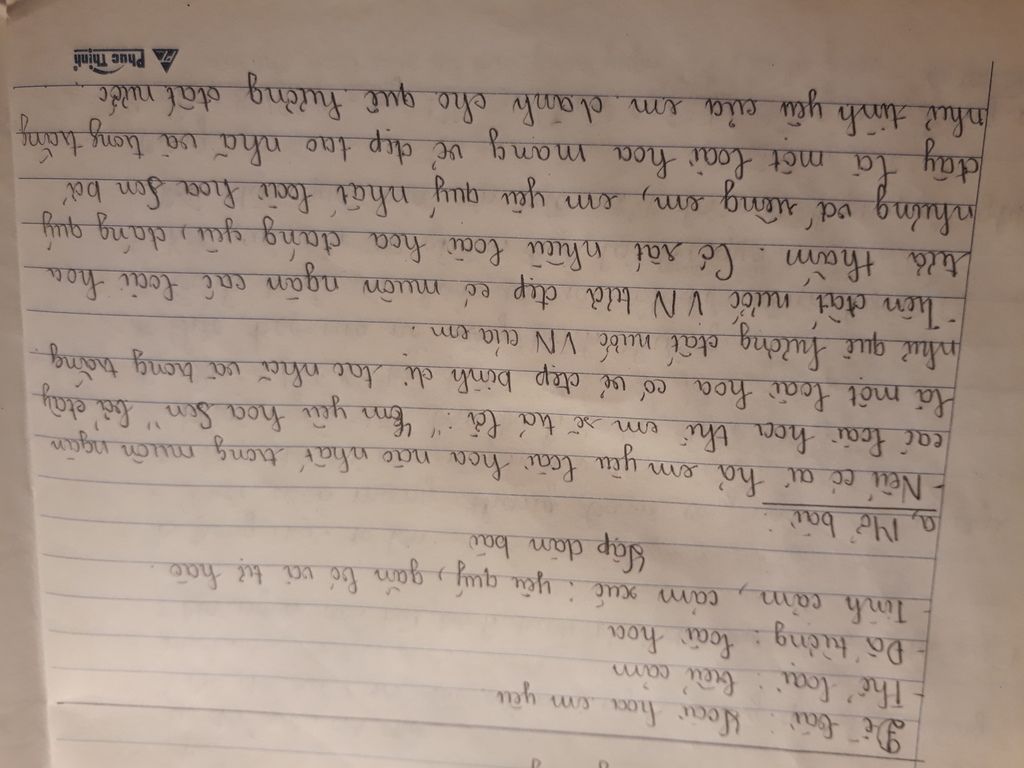 Đề bài: Loài hoa em yêu
- Thể loại: biểu cảm
- Đối tượng: loài hoa
- Tình cảm, cảm xúc: yêu quý, gắn bó và tự hào
Lập dàn bài
a, Mở bài:
- Nếu có ai hỏi em yêu loài hoa nào nhất trong muôn ngàn
các loài hoa thì em sẽ trả lời: "Em yêu hoa Sen" bởi đây
là một loài hoa có vẻ đẹp bình dị, tao nhã và trong trắng
như quê hương đất nước VN của em.
- Trên đất nước VN tươi đẹp có muôn ngàn các loài hoa
tươi thắm. Có rất nhiều loài hoa đáng yêu, đáng quý
nhưng với riêng em, em yêu quý nhất loài hoa Sen bởi
đây là một loài hoa mang vẻ đẹp tao nhã và trong trắng
như tình yêu của em dành cho quê hương đất nước.
Phúc Thịnh